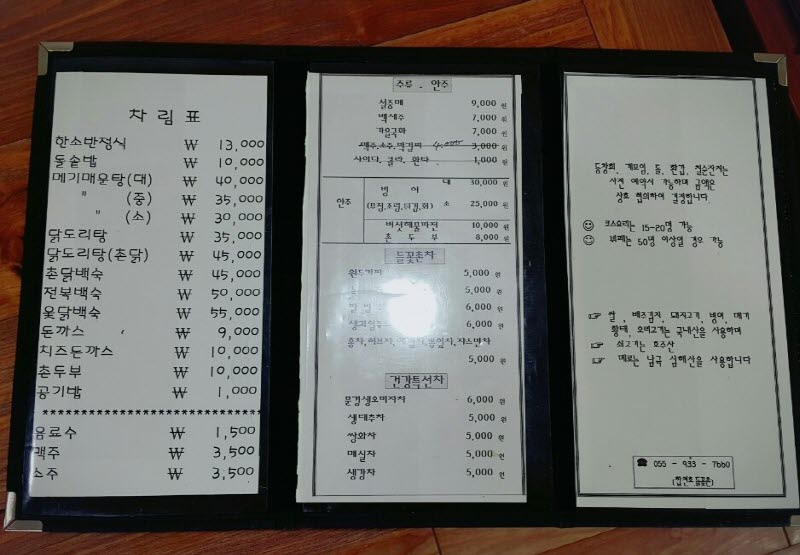 차림표
한소반정식 ₩ 13,000
돌솥밥 ₩ 10,000
메기매운탕(대) ₩ 40,000
" (중) ₩ 35,000
" (소) ₩ 30,000
닭도리탕 ₩ 35,000
닭도리탕(촌닭) ₩ 45,000
촌닭백숙 ₩ 45,000
전복백숙 ₩ 50,000
옻닭백숙 ₩ 55,000
돈까스 ₩ 9,000
치즈돈까스 ₩ 10,000
촌두부 ₩ 10,000
공기밥 ₩ 1,000
음료수 ₩ 1,500
맥주 ₩ 3,500
소주 ₩ 3,500
주류 . 안주
설중매 9,000 원
백세주 7,000 원
가을국화 7,000 원
맥주,소주,막걸리 4,000 3,000 원
사이다, 콜라, 환타 1,000 원
안주
빙어 대 30,000 원
(무침,조림,튀김,회) 소 25,000 원
버섯해물파전 10,000 원
촌두부 8,000 원
들꽃촌차
원두커피 5,000 원
5,000 원
6,000 원
6,000 원
5,000 원
건강특선차
문경생오미자차 6,000 원
생대추차 5,000 원
쌍화차 5,000 원
매실차 5,000 원
생강차 5,000 원
동창회, 계모임, 돌, 환갑, 칠순잔치는
사전 예약시 가능하며 금액은
상호 협의하여 결정합니다.
코스요리는 15-20명 가능
뷔페는 50명 이상일 경우 가능
쌀, 배추김치, 돼지고기, 빙어, 메기
황태, 오리고기는 국내산을 사용하며
쇠고기는 호주산
메로는 남극 심해산을 사용합니다
☎ 055 - 933 - 7660
(합천호 들꽃촌)